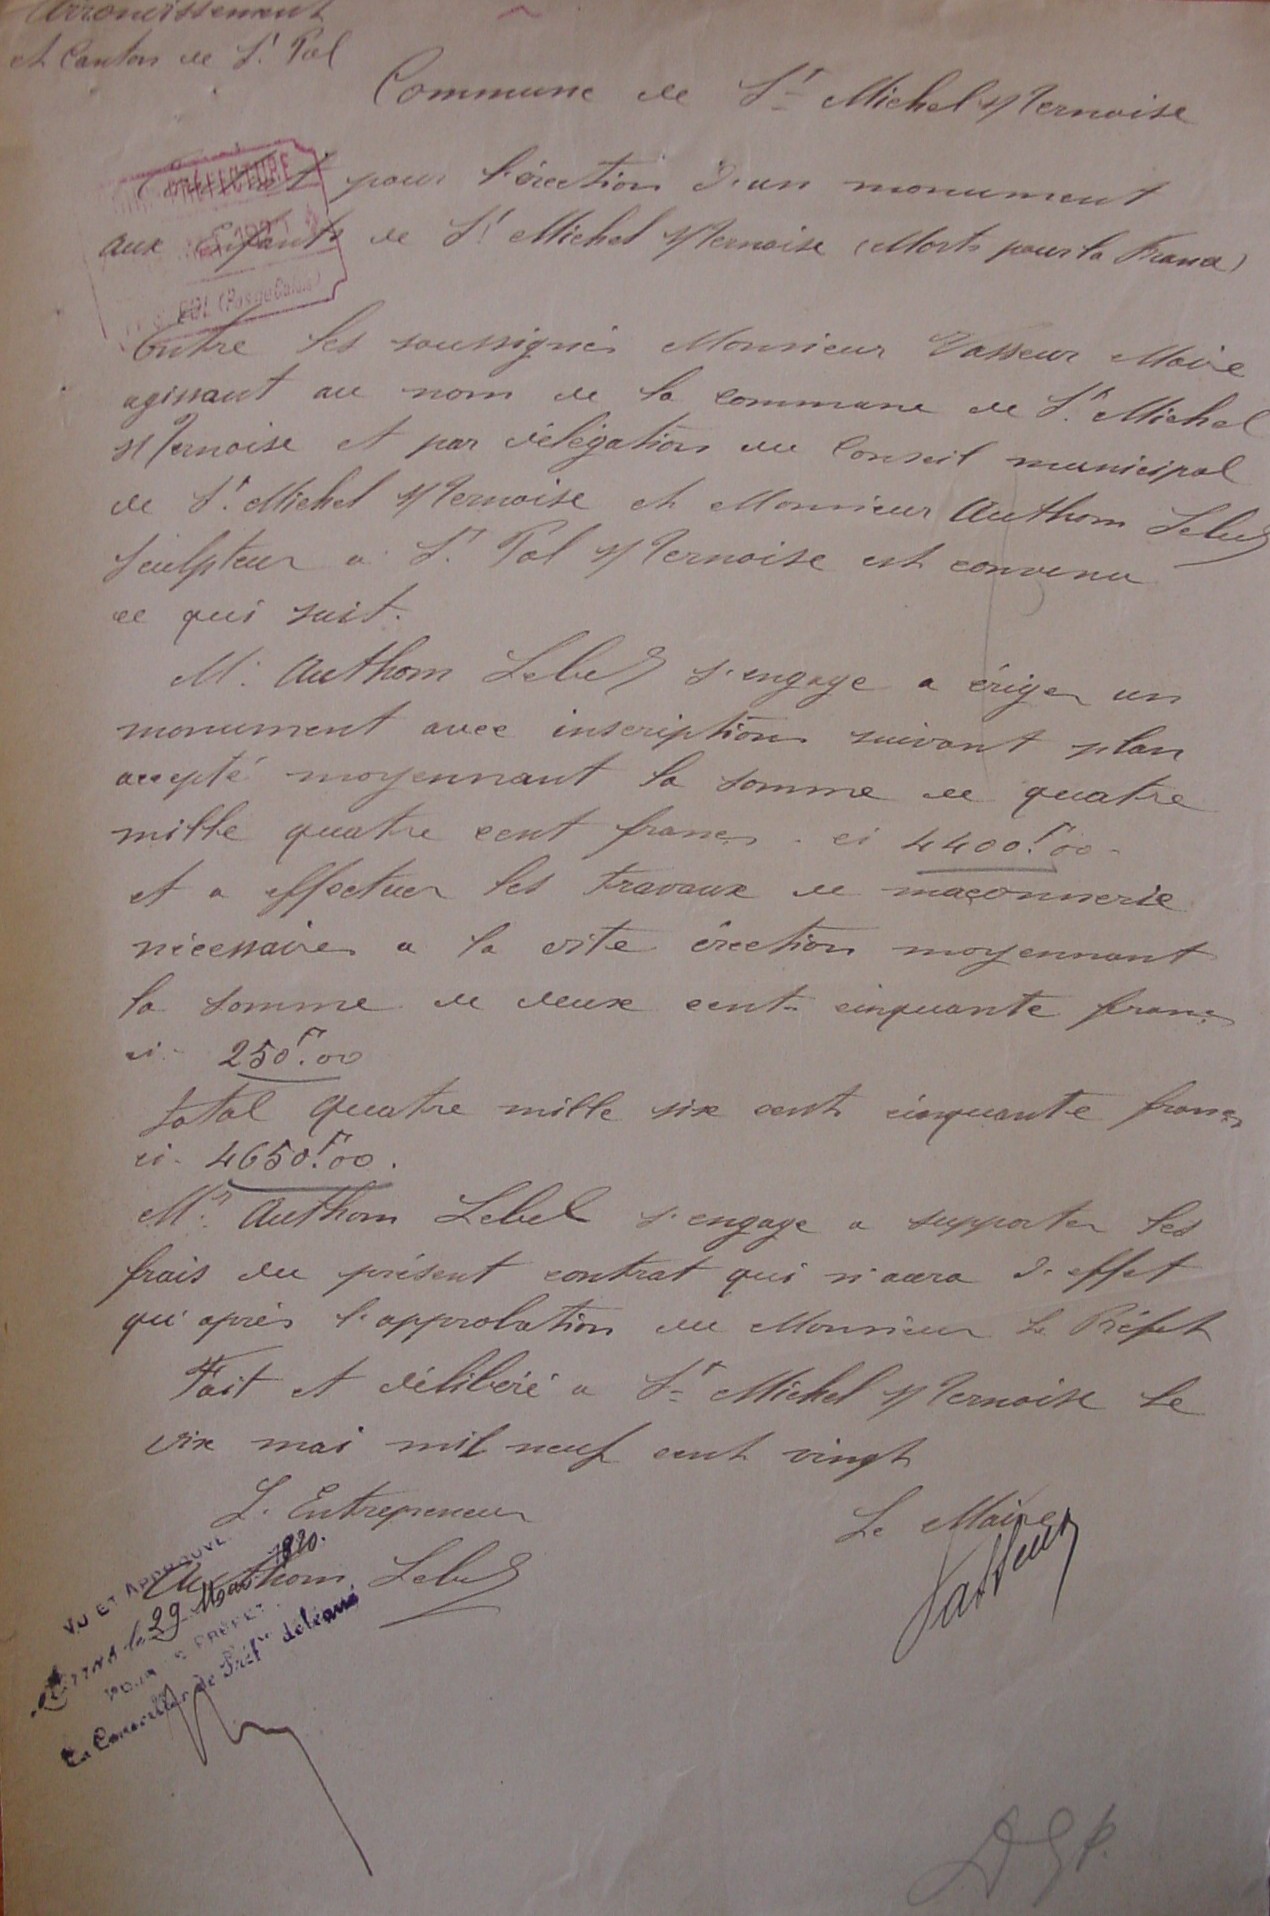 Arrondissement
et Canton de St Pol
Commune de St Michel s/ Ternoise
pour l'érection d'un monument
aux Enfants de St Michel s/ Ternoise (Morts pour la France)
SOUS-PRÉFECTURE
POL (Pas de Calais)
Entre les soussignés Monsieur Vasseur Maire
agissant au nom de la commune de St Michel
s/ Ternoise et par délégation du Conseil municipal
de St Michel s/ Ternoise et Monsieur Authom Lebel
sculpteur a St Pol s/ Ternoise est convenu
ce qui suit.
M. Authom Lebel s'engage a ériger un
monument avec inscriptions suivant plan
accepté moyennant la somme de quatre
mille quatre cent francs. ci 4400f.00
et a effectuer les travaux de maçonnerie
nécessaires a la dite érection moyennant
la somme de deux cent cinquante francs
ci. 250f.00
total quatre mille six cent cinquante francs
ci. 4650f.00.
Mr. Authom Lebel s'engage a supporter les
frais du présent contrat qui n'aura d'effet
qu'après l'approbation du Monsieur le Préfet
Fait et délibéré a St Michel s/ Ternoise le
dix mai mil neuf cent vingt
L'Entrepreneur
Le Maire
Authom Lebel
Vasseur
VU ET APPROUVÉ
le 29 Mai 1920.
POUR LE PRÉFET
Le Conseiller de Préf délégué